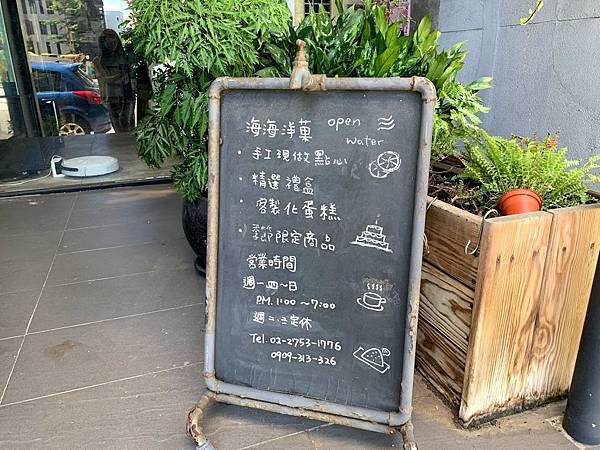 海海洋菓 open
water
· 手工現做點心
· 精選禮盒
· 客製化蛋糕
· 季節限定商品
營業時間
週一.四~日
P.M. 1:00 ~ 7:00
週二.三定休
Tel. 02-2753-1776
0909-313-326